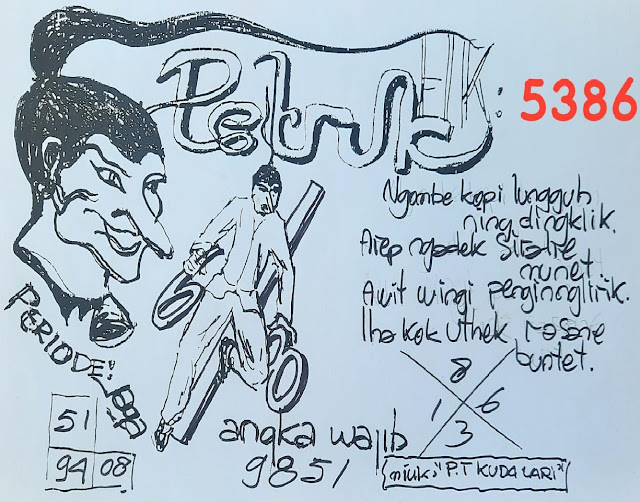 Petruk
FK: 5386
Ngombe kopi lungguh
ning dingklik.
Arep ngadek Sirahe
munet.
Awit wingi penginnglirik.
lha kok Uthek rasane
buntet.
PERIODE:
8
1 6
3
51
94 08
angka wajib
9851
"P.T KUDA LARI"